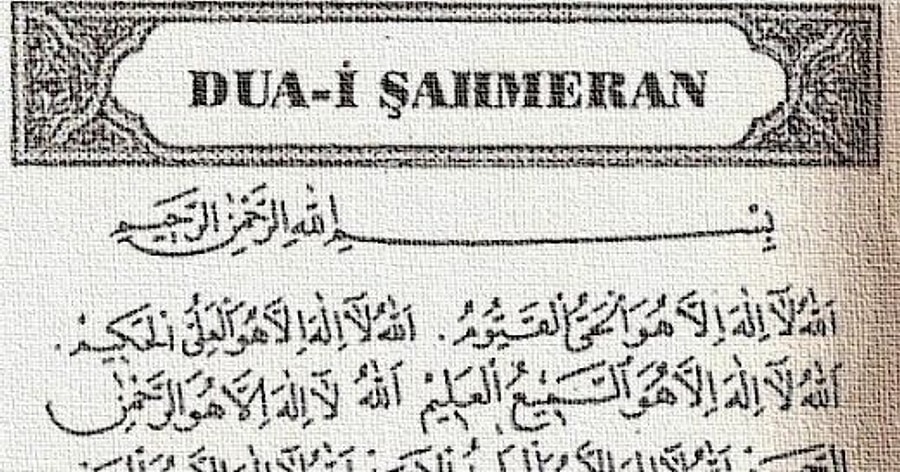 DUA-İ ŞAHMERAN
بِسْـــــــمِ اللهِ الرَّحْمٰنِ الرَّحِيمِ
اَللهُ لَآ اِلٰهَ اِلَّا هُوَ الْحَىُّ الْقَيُّومُ . اَللهُ لَآ اِلٰهَ اِلَّا هُوَ الْعَلِىُّ الْحَكِيمُ .
اَللهُ لَآ اِلٰهَ اِلَّا هُوَ السَّمِيعُ الْعَلِيمُ اَللهُ لَآ اِلٰهَ اِلَّا هُوَ الرَّحْمٰنُ